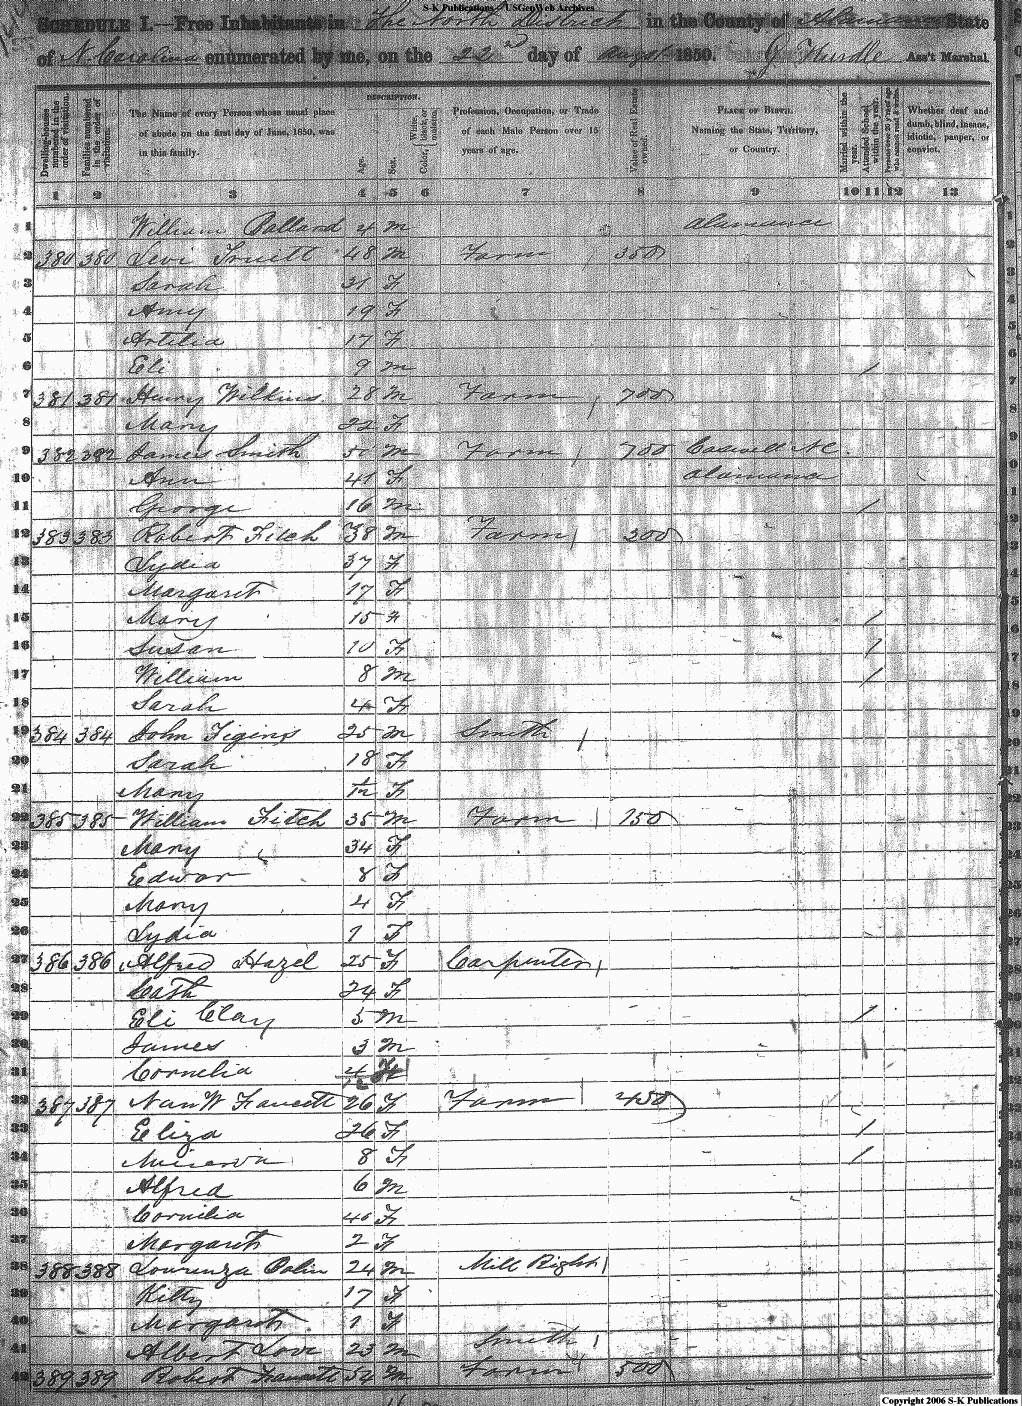 S-K Publications - USGenWeb Archives
SCHEDULE I.—Free Inhabitants in The North District in the County of Alamance State
of N. Carolina enumerated by me, on the 22nd day of August 1850. G Hurdle Ass't Marshal.
Dwelling-houses numbered in the order of visitation. Families numbered in the order of visitation. The Name of every Person whose usual place of abode on the first day of June, 1850, was in this family. DESCRIPTION. Age. Sex. Color, White, black, or mulatto. Profession, Occupation, or Trade of each Male Person over 15 years of age. Value of Real Estate owned. PLACE OF BIRTH. Naming the State, Territory, or Country. Married within the year. Attended School within the year. Persons over 20 y'rs of age who cannot read & write. Whether deaf and dumb, blind, insane, idiotic, pauper, or convict.
1 2 3 4 5 6 7 8 9 10 11 12 13
1 William Pollard 4 M Alamance
2 380 380 Levi Truitt 48 M Farm 350
3 Sarah 31 F
4 Amy 19 F
5 Artilia 17 F
6 Eli 9 M 1
7 381 381 Henry Wilkins 28 M Farm 700
8 Mary 22 F
9 382 382 James Smith 50 M Farm 700 Caswell NC
10 Ann 41 F Alamance
11 George 16 M 1
12 383 383 Robert Fitch 38 M Farm 300
13 Lydia 37 F
14 Margaret 17 F
15 Mary 15 F 1
16 Susan 10 F 1
17 William 8 M 1
18 Sarah 4 F
19 384 384 John Figins 25 M Smith
20 Sarah 18 F
21 Mary 1/12 F
22 385 385 William Fitch 35 M Farm 150
23 Mary 34 F
24 Edwar 8 F
25 Mary 4 F
26 Lydia 1 F
27 386 386 Alfred Hazel 25 F Carpenter
28 Cath 24 F
29 Eli Clay 5 M 1
30 James 3 M
31 Cornelia 4/12 F
32 387 387 Nan W Faucett 26 F Farm 450
33 Eliza 26 F 1
34 Minerva 8 F 1
35 Alfred 6 M
36 Cornilia 4 F
37 Margarett 2 F
38 388 388 Lourenza Polin 24 M Mill Right
39 Kitty 17 F
40 Margarett 1 F
41 Albert Love 23 M Smith
42 389 389 Robert Faucett 54 M Farm 500
Copyright 2006 S-K Publications